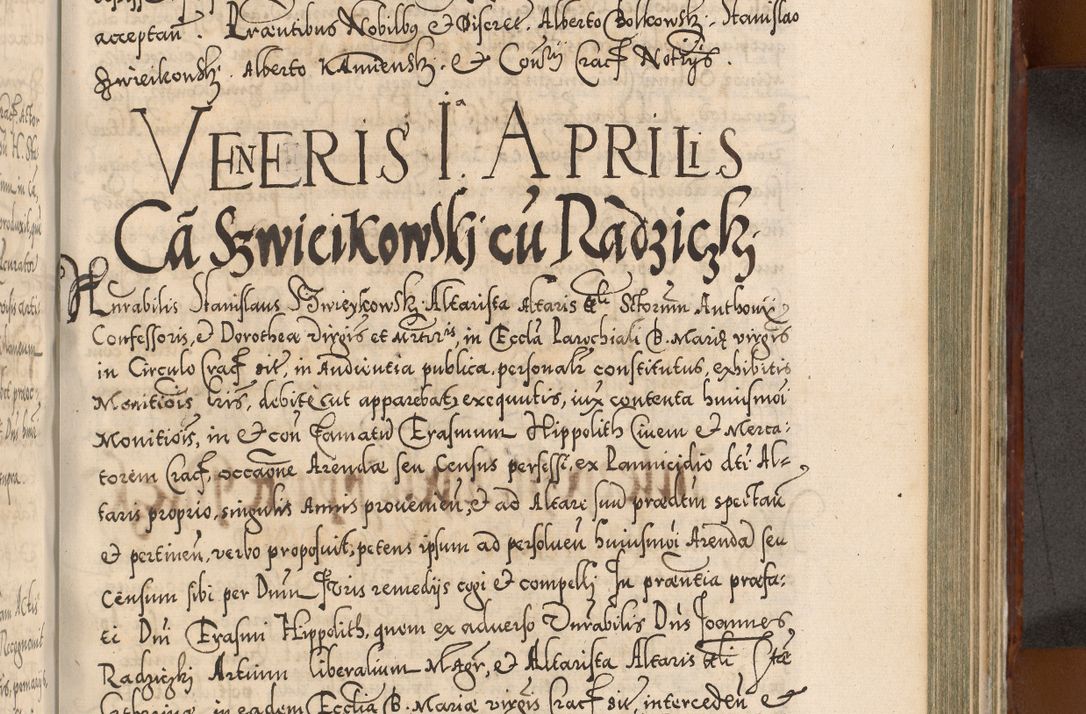 acceptan̄. Praesentibus Nobilibus et Discret. Alberto Bolkowskj. Stanislao
Szwieikowskj. Alberto Kamienskj. et Cousrÿ Crac̄ Notrÿs.
VENERIS I.ª APRILIS
Cã Szwieikowskj cũ Radziczkj.
Vnrabilis Stanislaus Szwieykowskj Altarista Altaris tt̄li Sctorum Anthonÿ
Confessoris, et Dorotheae virgis et Mrtiris, in Eccla Parochiali B. Mariae virgis
in Circulo Crac̄ sit̄, in Audientia publica, personalr constitutus, exhibitis
Monitiois lr̄is, debite ut apparebat exequutis, iux contenta huiusmoi
Monitiois, in et con famatū Erasmum Hippolith Civem et Merca:
torem Crac̄, occaone Arendae seu Census perfessi, ex Pannicidio dti Al-
taris proprio, singulis Annis provenien̄, et ad Altare suū praedtm spectan̄
et pertinen̄, verbo proposuit, petens ipsum ad persolven̄ huiusmoi Arendā seu
Censum sibi per Dnm Juris remedijs cogi et compellj In praentia praefa:
ti Dni Erasmi Hippolith, quem ex adverso Vnrabilis Dns Joannes
Radzieykj Artium liberalium Magr, et Altarista Altaris tt̄li Stae
Catharinae, in eadem Ecclia B. Mariae virgis Crac̄ sit̄, interceden̄ et